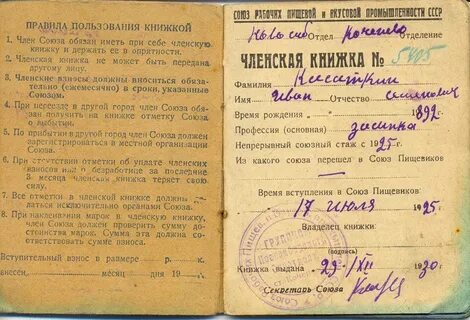 ПРАВИЛА ПОЛЬЗОВАНИЯ КНИЖКОЙ
1. Член Союза обязан иметь при себе членскую
книжку и держать ее в опрятности.
2. Членская книжка не может быть передана
другому лицу.
3. Членские взносы должны вноситься обяза-
тельно (ежемесячно) в сроки, указанные
Союзом.
4. При переезде в другой город член Союза обя-
зан получить на книжке отметку Союза
о выбытии.
5. По прибытии в другой город член Союза должен
зарегистрироваться в местной организации
Союза.
6. При отсутствии отметки об уплате членских
взносов или о безработице за последние
3 месяца членская книжка теряет свою
силу.
7. Все отметки в членской книжке должны
делаться исключительно органами Союза.
8. При наклеивании марок в членскую книжку,
член Союза должен проверить сумму до-
стоинства марок. Сумма эта должна
соответствовать сумме взноса.
Вступительный взнос в размере р. к.
внесен, месяц дня 19 г.
СОЮЗ РАБОЧИХ ПИЩЕВОЙ И ВКУСОВОЙ ПРОМЫШЛЕННОСТИ СССР
Отдел Отделение
ЧЛЕНСКАЯ КНИЖКА №
Фамилия
Имя Иван Отчество
Время рождения 1892
Профессия (основная)
Непрерывный союзный стаж с 1925 г.
Из какого союза перешел в Союз Пищевиков
—
Время вступления в Союз Пищевиков
17 июля 1925 г.
Владелец книжки
(подпись)
Книжка выдана 29/XII 1930 г.
Секретарь Союза